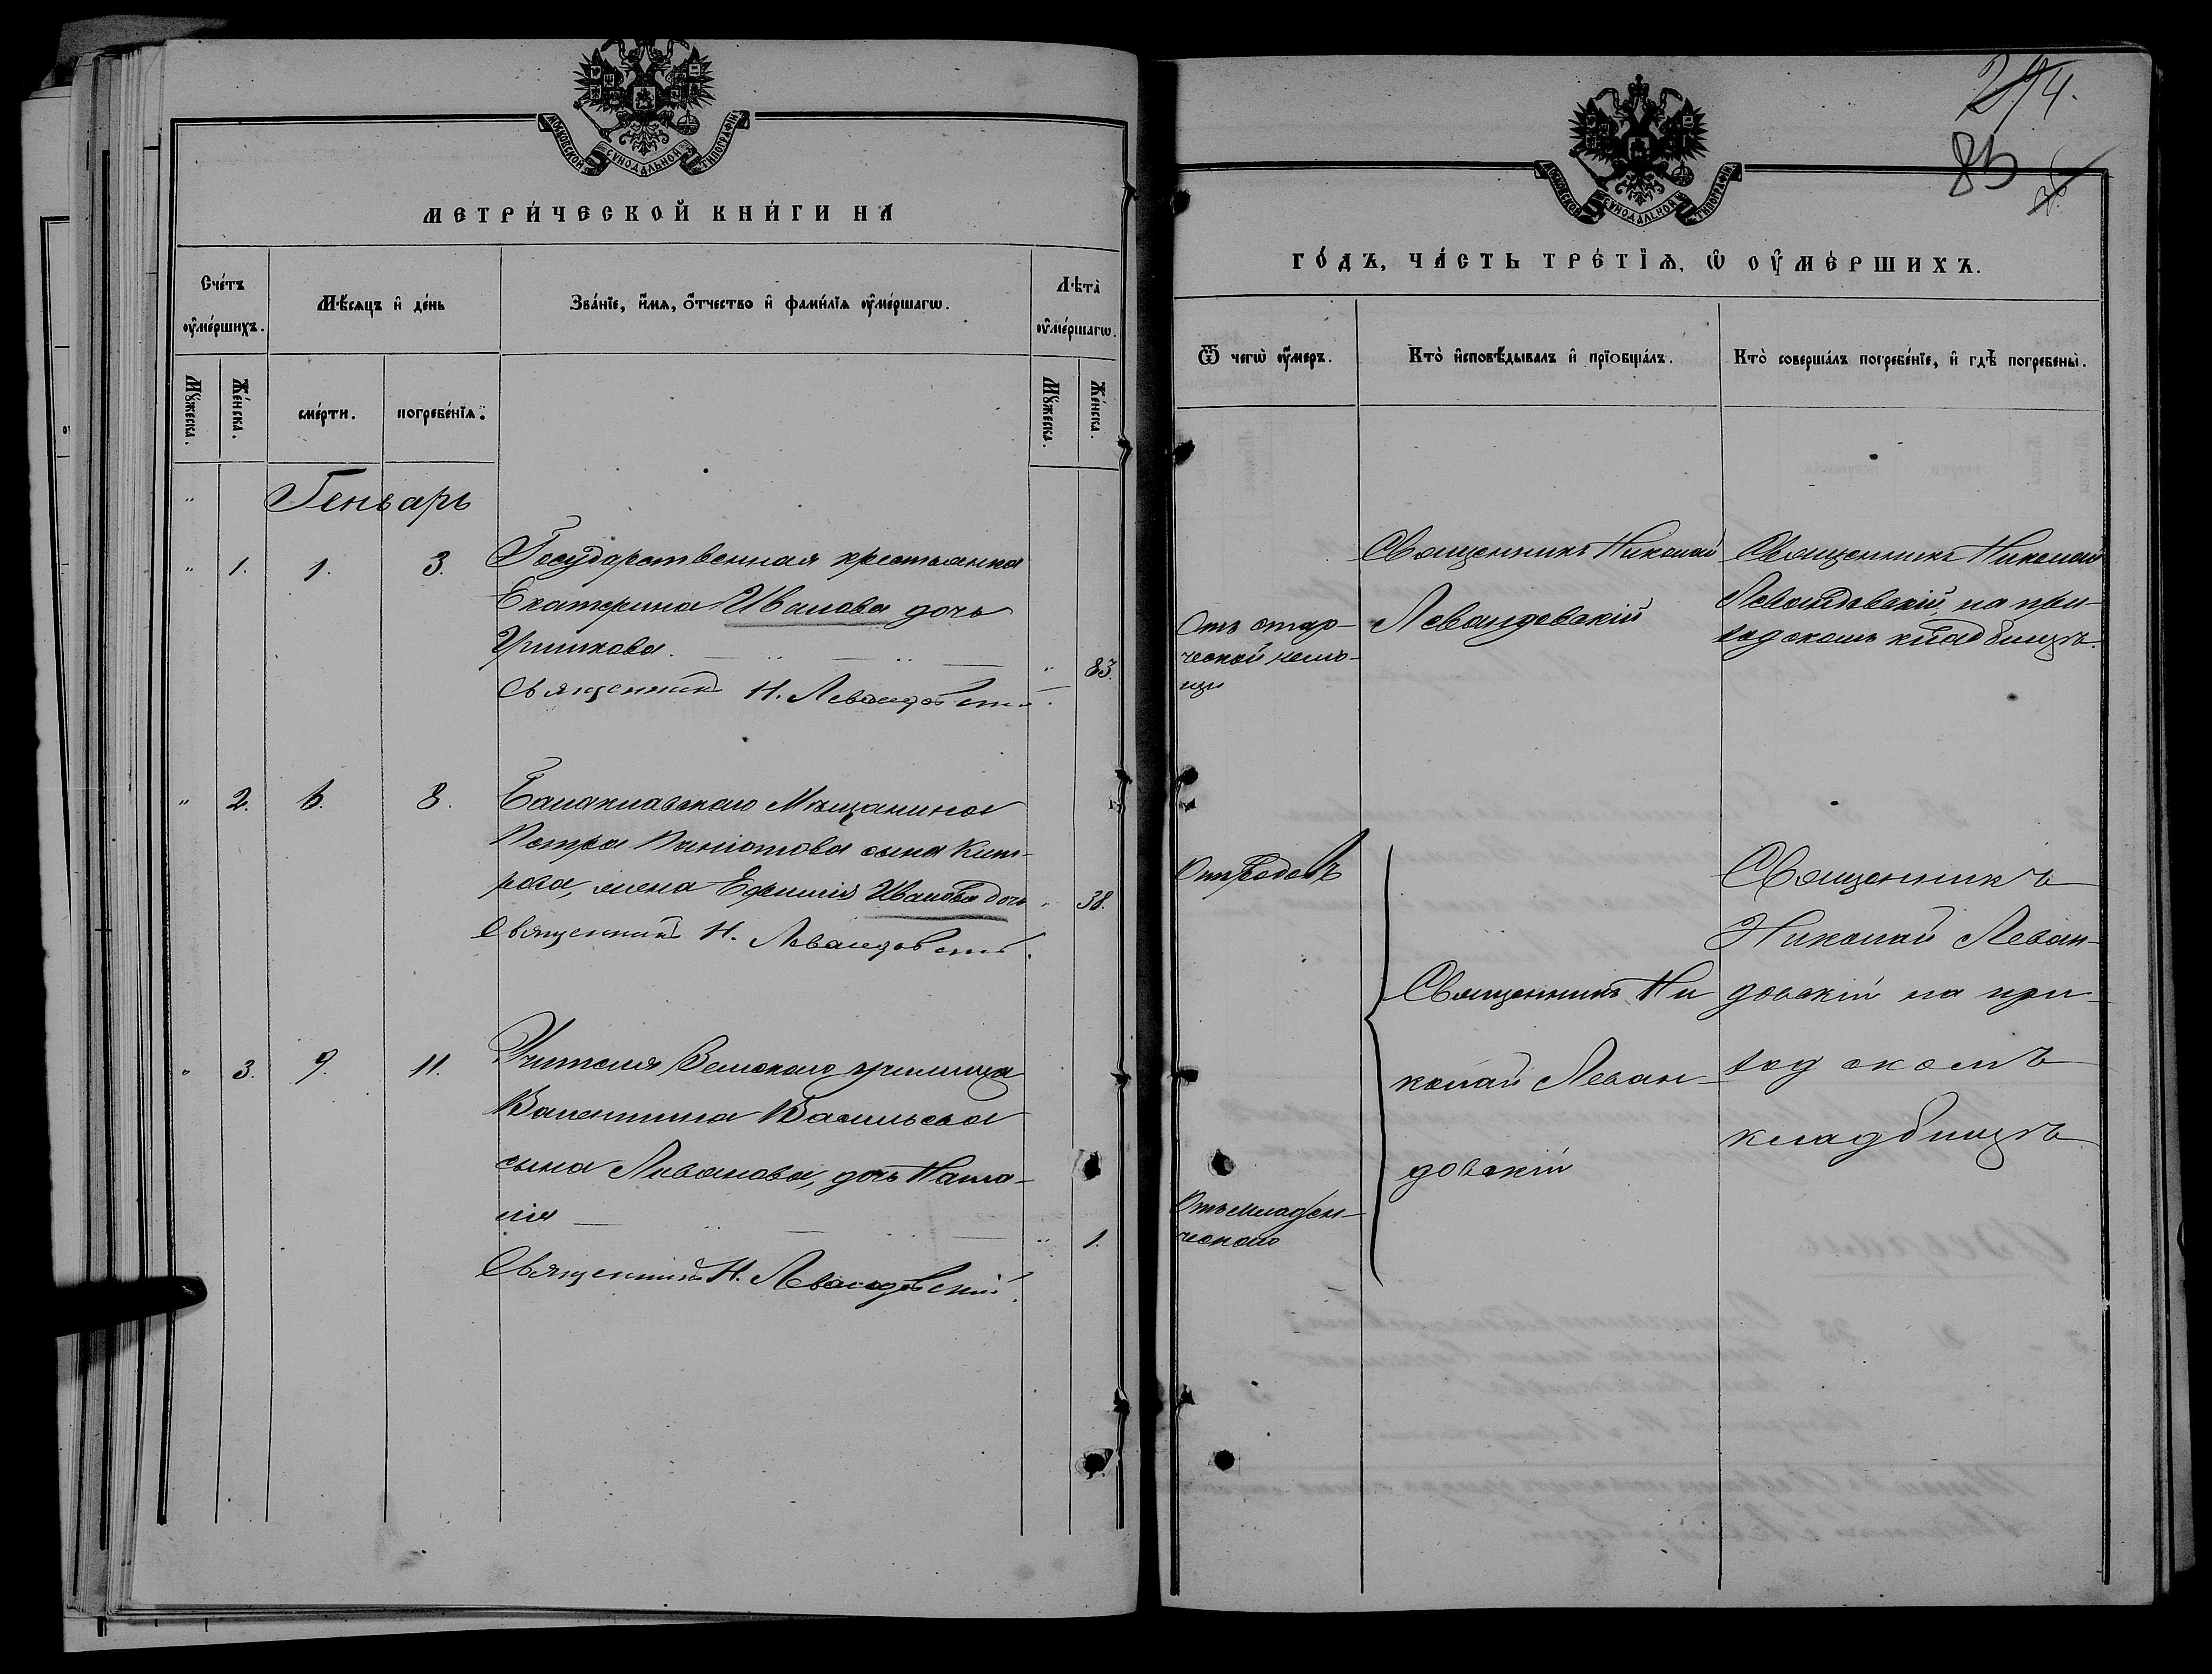 МОСКОВСКОЙ СѴНОДАЛЬНОЙ ТИПОГРАФІИ
МЕТРИ́ЧЕСКОЙ КНИ́ГИ НА
Сче́тъ ᲂу҆ме́ршихъ.
Мѣ́сяцъ и҆ де́нь
Зва́нїе, и҆́мя, ѻ҆́тчество и҆ фами́лїя ᲂу҆ме́ршагѡ.
Лѣта̀ ᲂу҆ме́ршагѡ.
Мꙋ́жеска.
Же́нска.
сме́рти.
погребе́нїѧ.
Мꙋ́жеска.
Же́нска.
Генварь
" 1. 1. 3. Государственная крестьянка
Екатерина Иванова дочь
" 83.
Священникъ Н. Левандовскій.
" 2. 6. 8. Балаклавскаго Мѣщанина
Петра Паніотова сына Кит-
рова, жена Ефимія Иванова дочь " 38.
Священникъ Н. Левандовскій.
" 3. 9. 11. Учителя Земскаго училища
Валентина Васильева
сына Ливанова, дочь Ната-
лія " 1.
Священникъ Н. Левандовскій.
294.
85
МОСКОВСКОЙ СѴНОДАЛЬНОЙ ТИПОГРАФІИ
ГО́ДЪ, ЧА́СТЬ ТРЕ́ТЇѦ, Ѡ҆ ОУ҆МЕ́РШИХЪ.
Ѿ чегѡ̀ ᲂу҆́меръ.
Кто̀ и҆сповѣ́дывалъ и҆ прїѻбща́лъ.
Кто̀ соверша́лъ погребе́нїе, и҆ гдѣ̀ погребены̀.
Отъ стар-
ческой немо-
щи
Священникъ Николай
Левандовскій
Священникъ Николай
Левандовскій на при-
ходскомъ кладбищѣ.
Отъ родовъ
Отъ младен-
ческаго
Священникъ Ни
колай Леван-
довскій
Священникъ
Николай Леван-
довскій на при-
ходскомъ
кладбищѣ